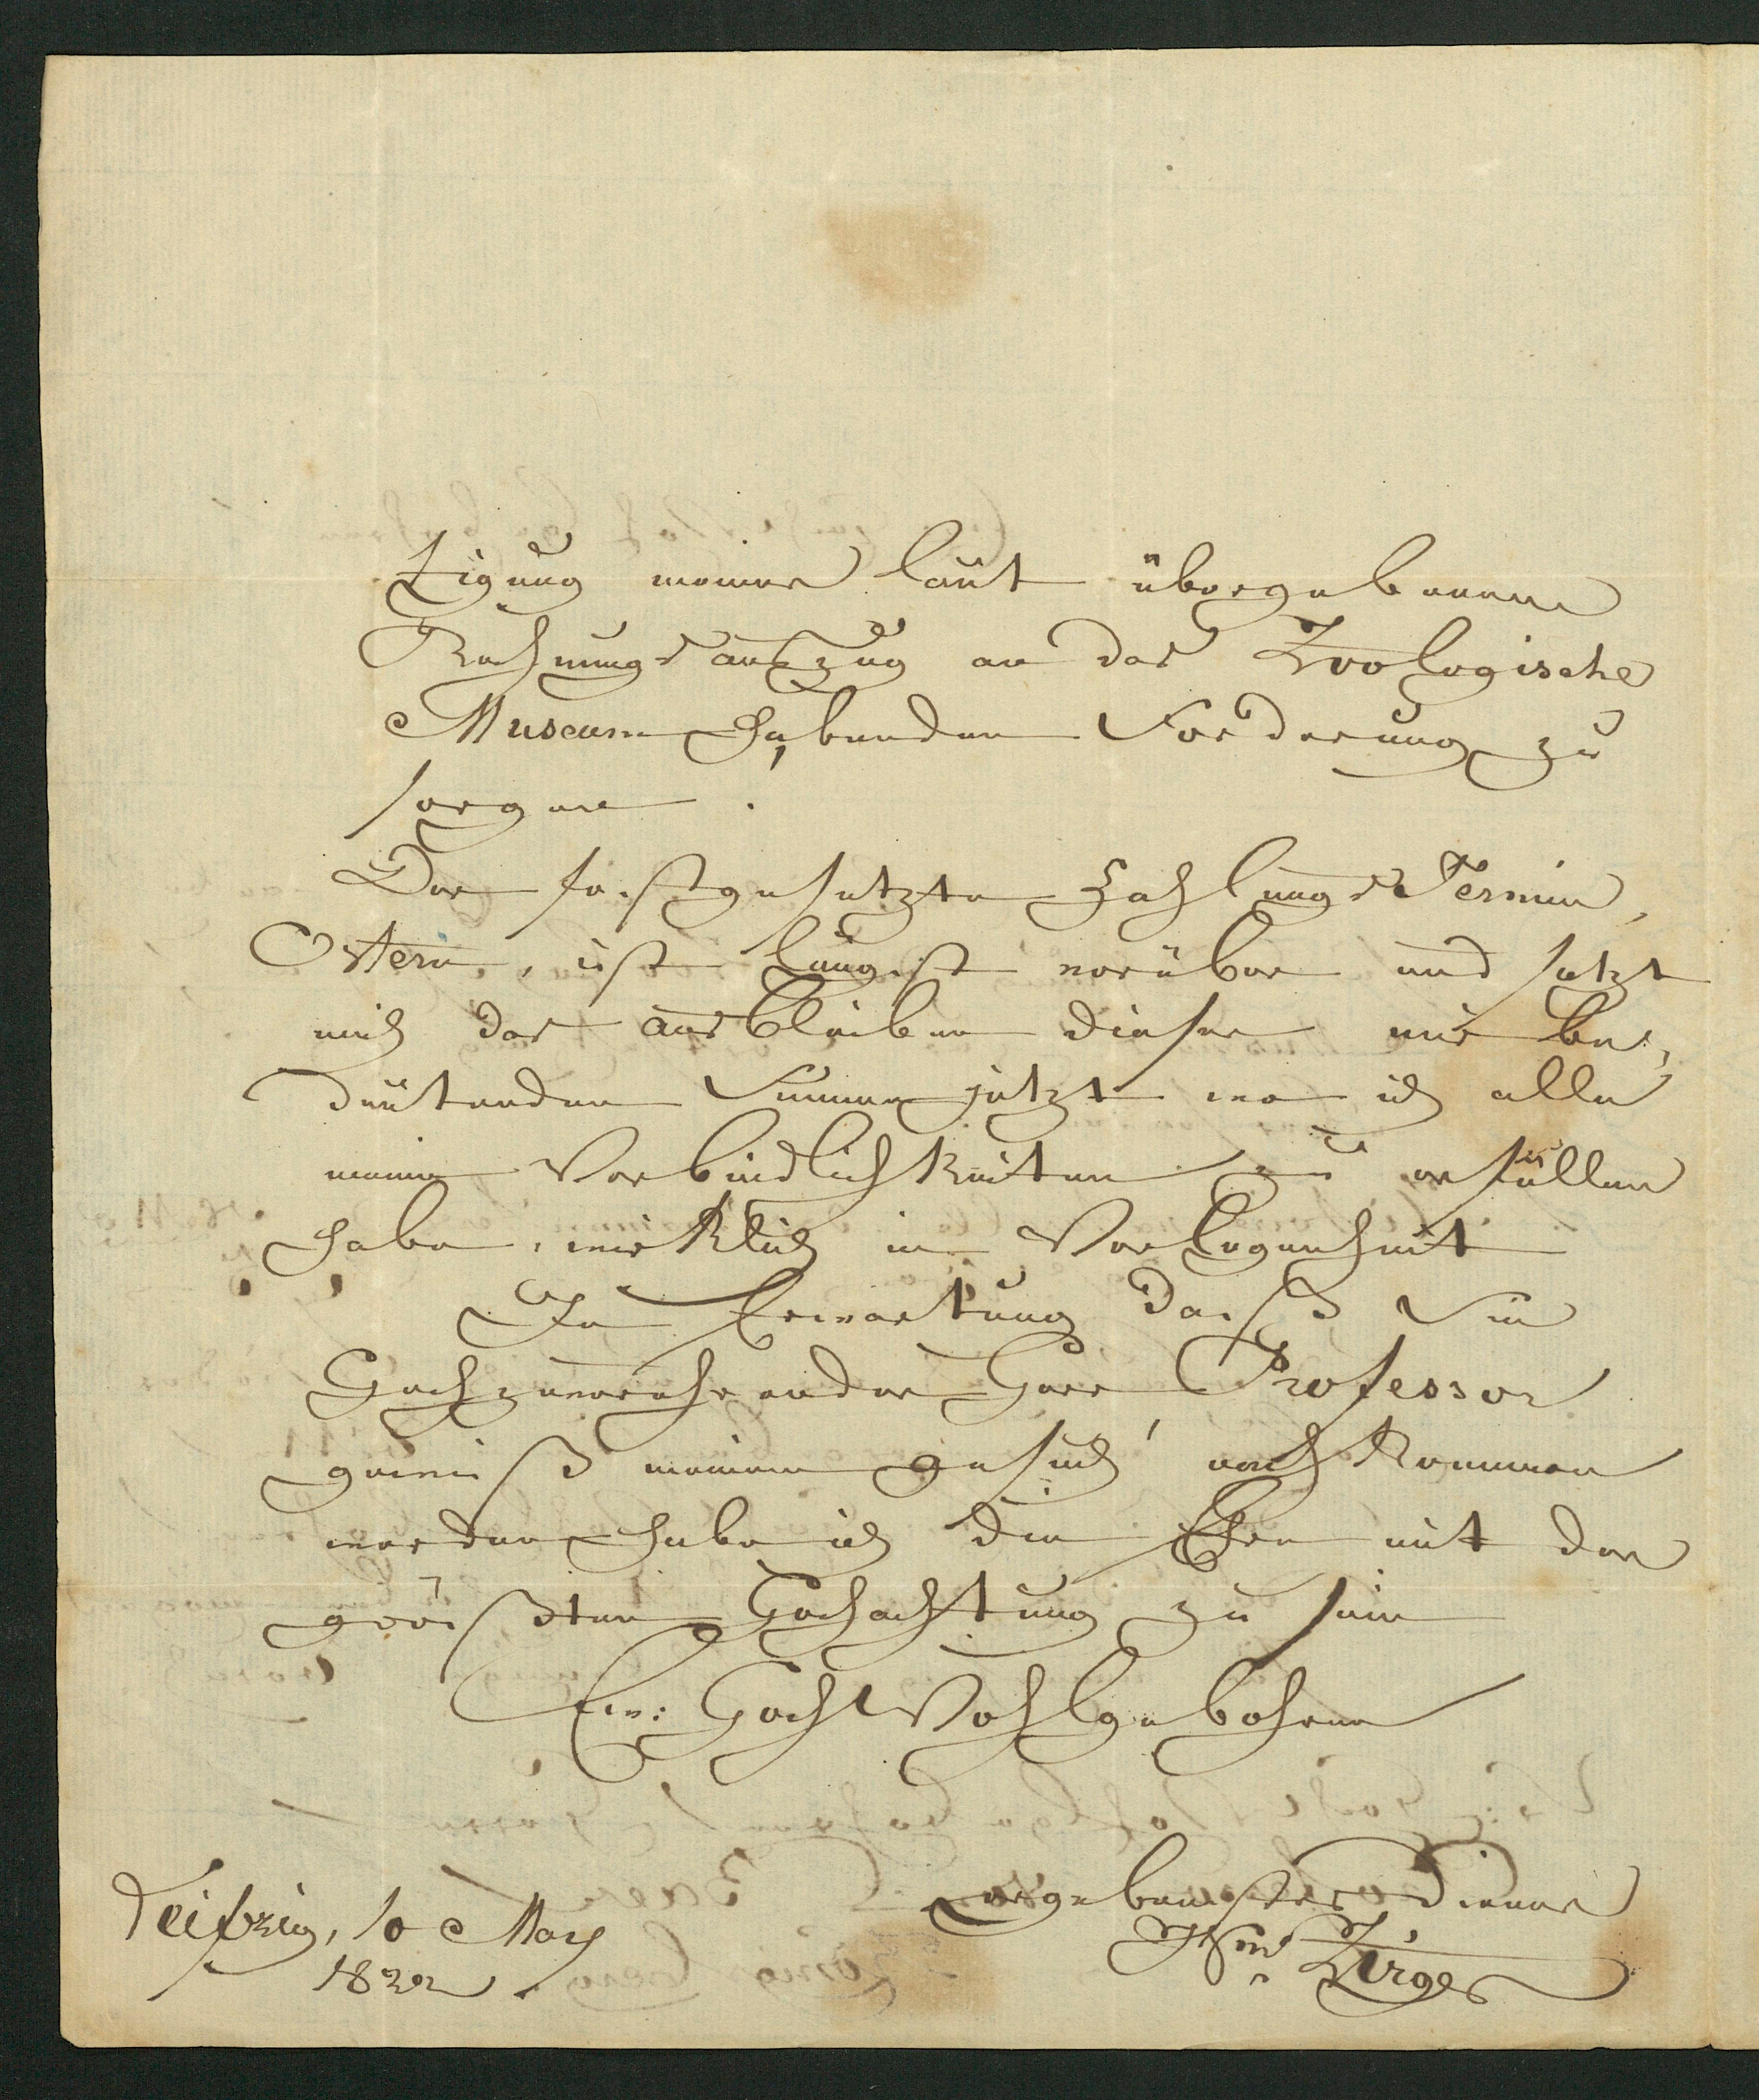 tigung meiner laut übergebenen
Rechnungsauszug an das Zoologische
Museum habenden Forderung zu
sorgen.
Der festgesetzte Zahlungs Termin,
Ostern, ist längst vorüber und setzt
mich das ausbleiben dieser mir be,,
deutenden Summe jetzt wo ich alle
meine Verbindlichkeiten zu erfüllen
habe, wirklich in Verlegenheit
In Erwartung daß Sie
Hochzuverehrender Herr Professor
gewiß meinem gesuch nachkommen
werden habe ich die Ehre mit der
größten Hochachtung zu sein
Ew: HochWohlgebohren
ergebenster Diener
Zirges
Leipzig, 10 May
1822